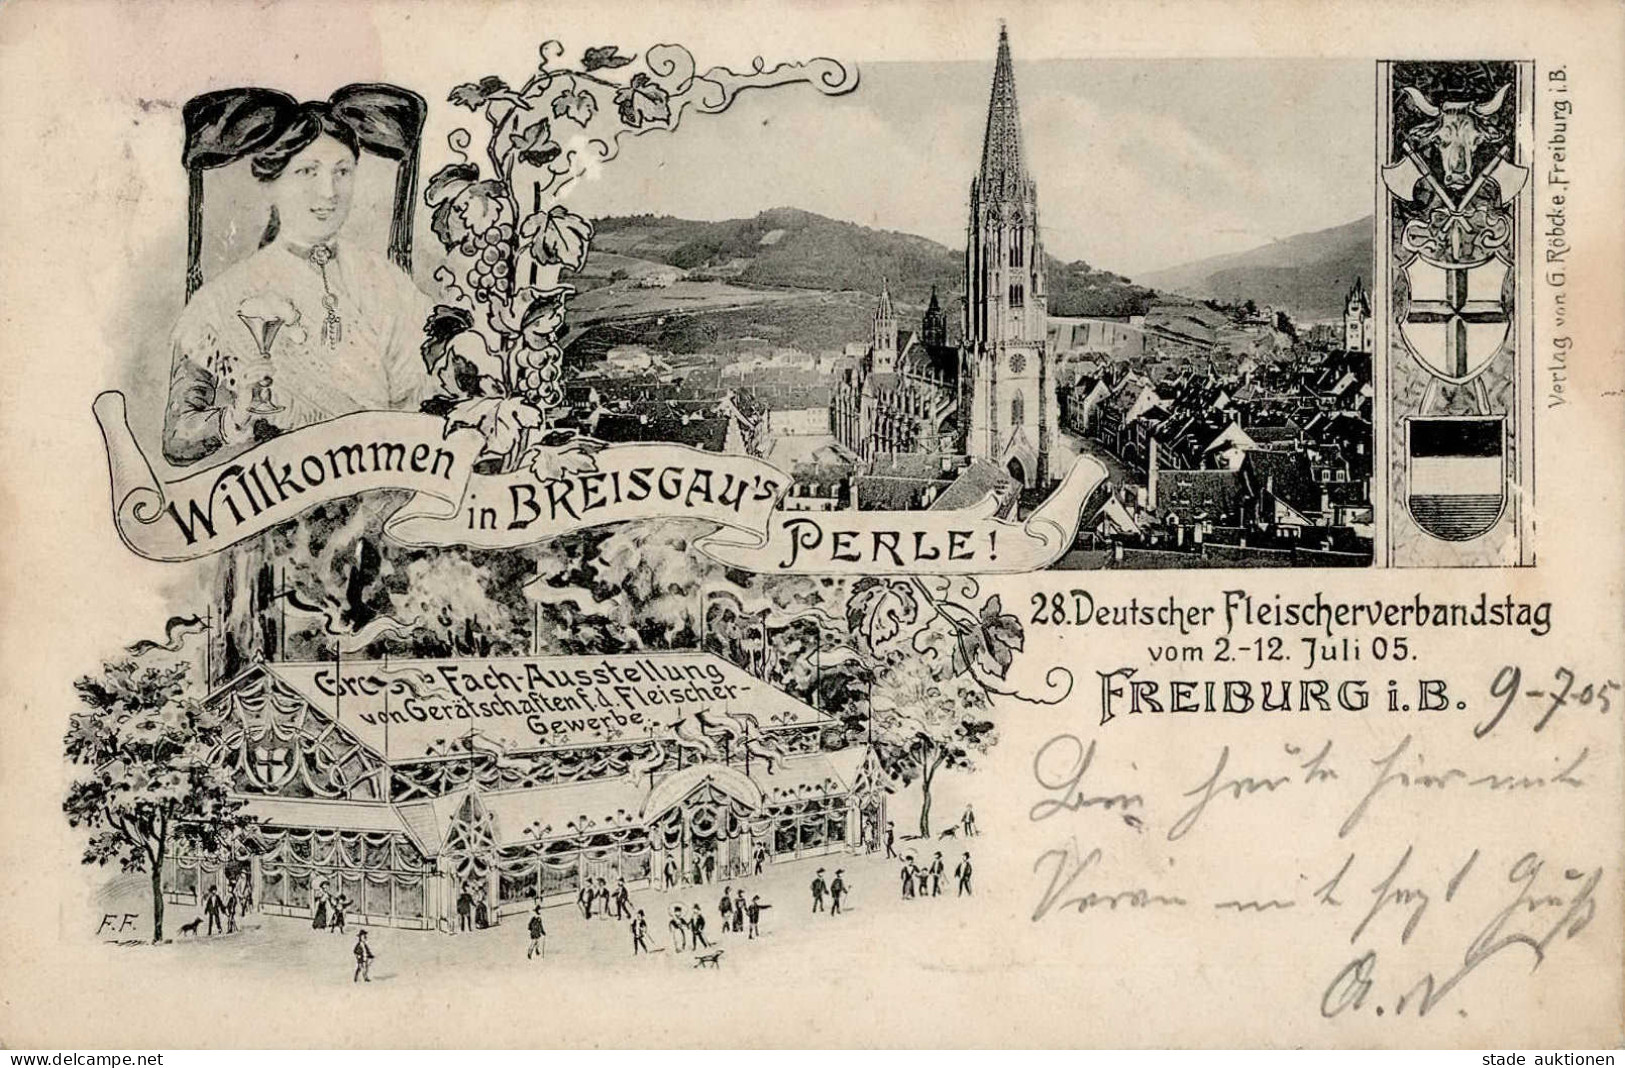 Willkommen
in BREISGAU's
PERLE!
Verlag von G. Röbcke, Freiburg i. B.
28. Deutscher Fleischerverbandstag
vom 2.-12. Juli 05.
FREIBURG i. B. 9-7-05
Große Fach-Ausstellung
von Gerätschaften f. d. Fleischer-
Gewerbe.
F. F.
Bin heute hier mit
Verein mit Gruß
A. W.
www.delcampe.net
stade auktionen